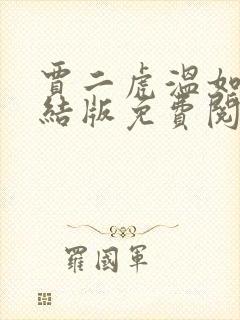 賈二虎溫如
結版免費閱
羅國軍